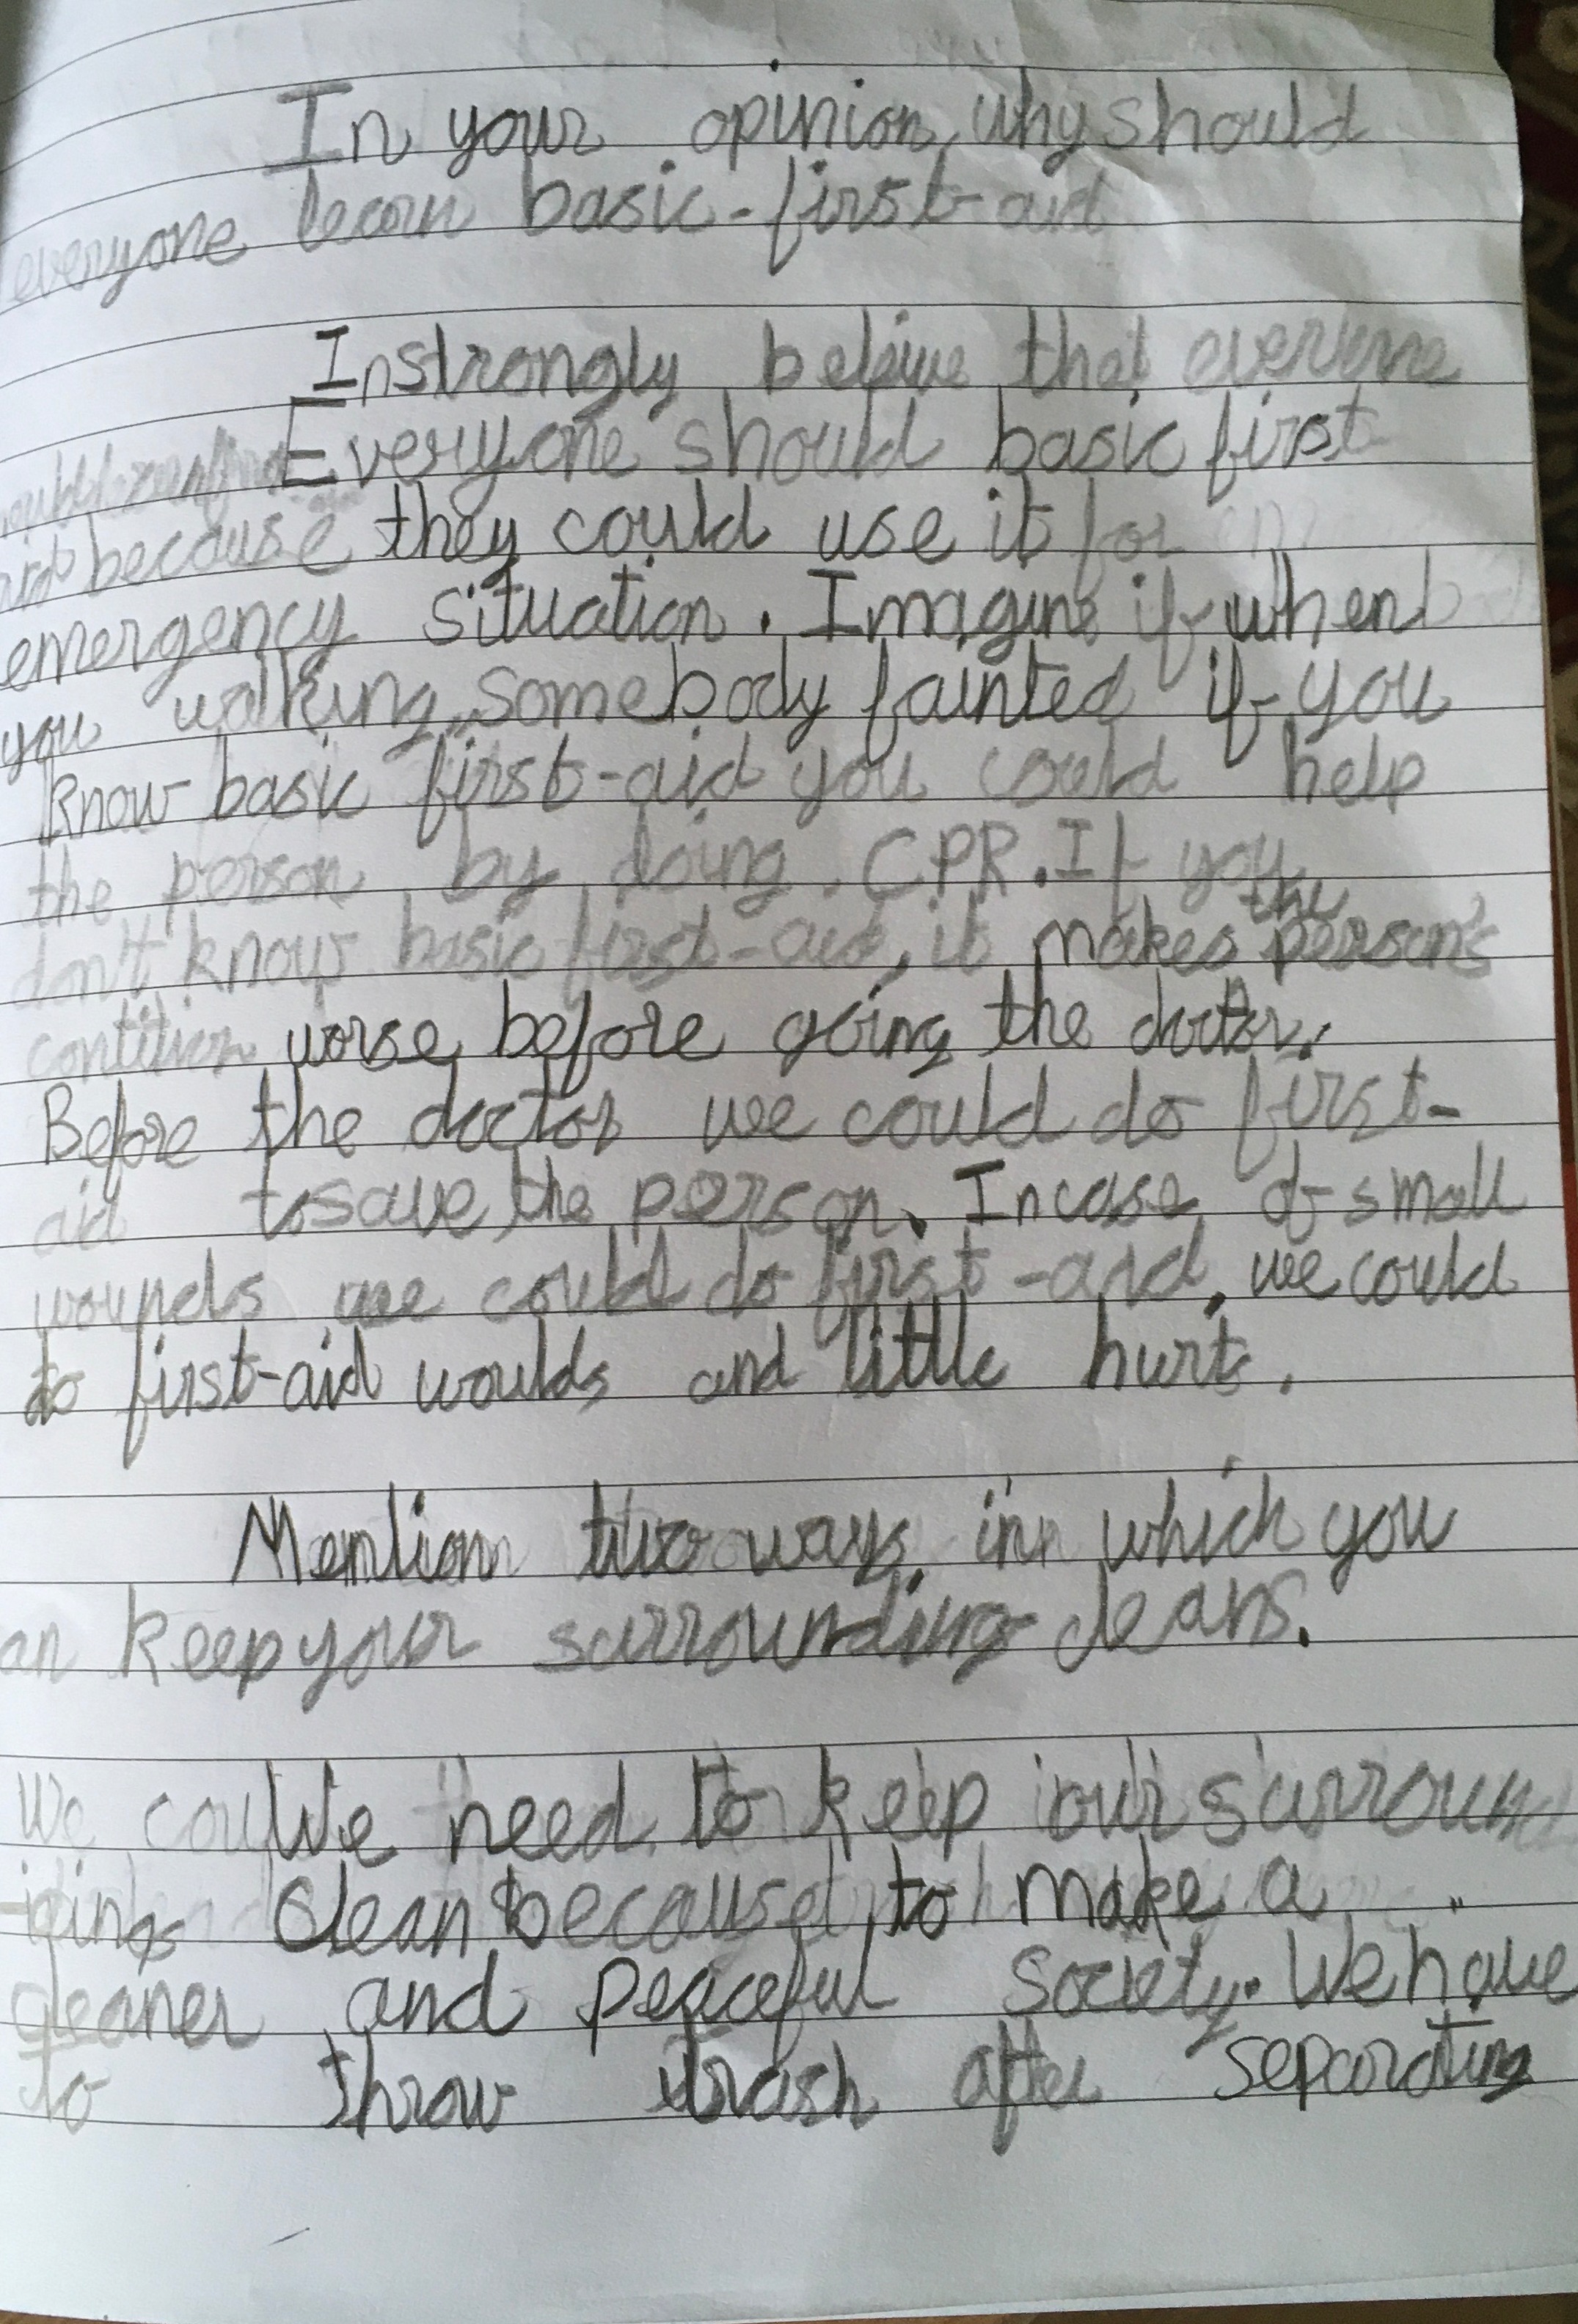 In your opinion, why should
everyone learn basic-first-aid
Instrongly beleive that everyone
Everyone should basic first
aid because they could use it for
emergency situation. Imagine if when
you walking, somebody fainted if you
know basic first-aid you could help
the person by doing CPR. If you
don't know basic first-aid, it makes the person's
contition worse before going the doctor.
Before the doctor we could do first-
aid to save the person. Incase of small
wounds we could do first-aid, we could
do first-aid woulds and little hurts.
Mention two ways in which you
an keep your surrounding cleans.
We cou We need to keep our surroun
-dings clean because to make a
cleaner and peaceful society. We have
to throw trash after separating